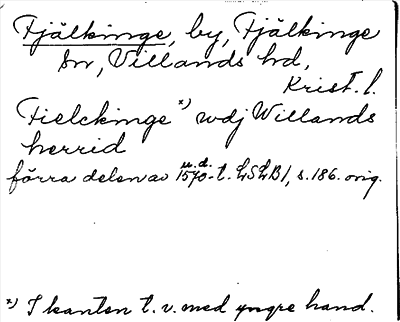 Fjälkinge, by, Fjälkinge
sn, Villands hd,
Krist. l.
Fielckinge *) wdj Willands
herrid
u. d.
förra delen av 1570-t. LSLB 1, s. 186. orig.
*) I kanten t. v. med yngre hand.